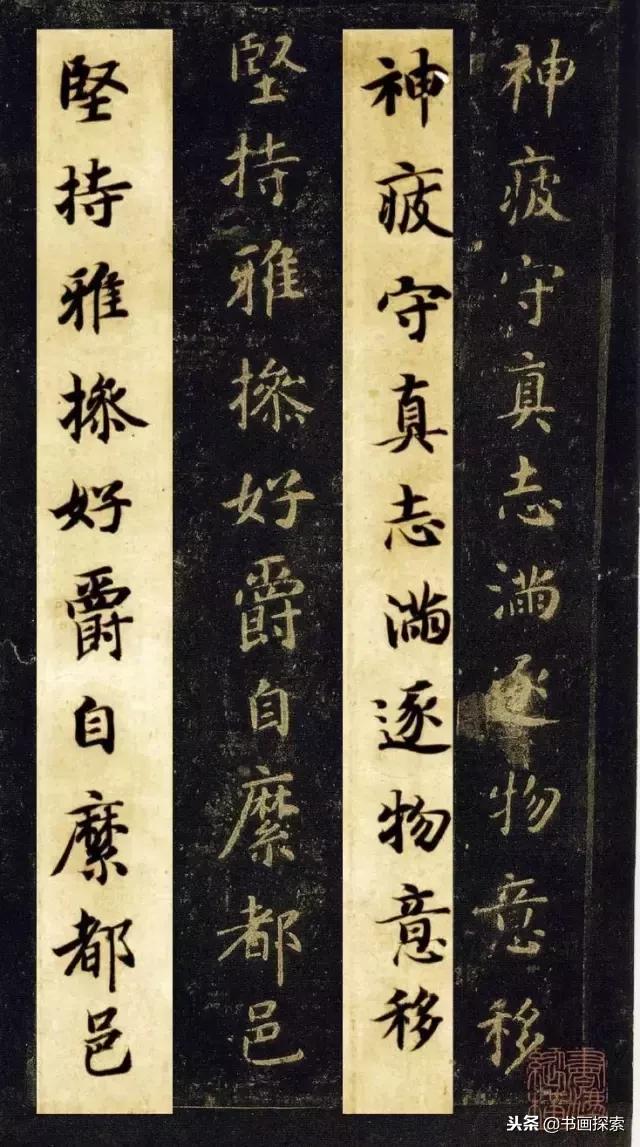 神疲守真志滿逐物意移
神疲守真志滿逐物意移
堅持雅操好爵自縻都邑
堅持雅操好爵自縻都邑
头条@书画探索